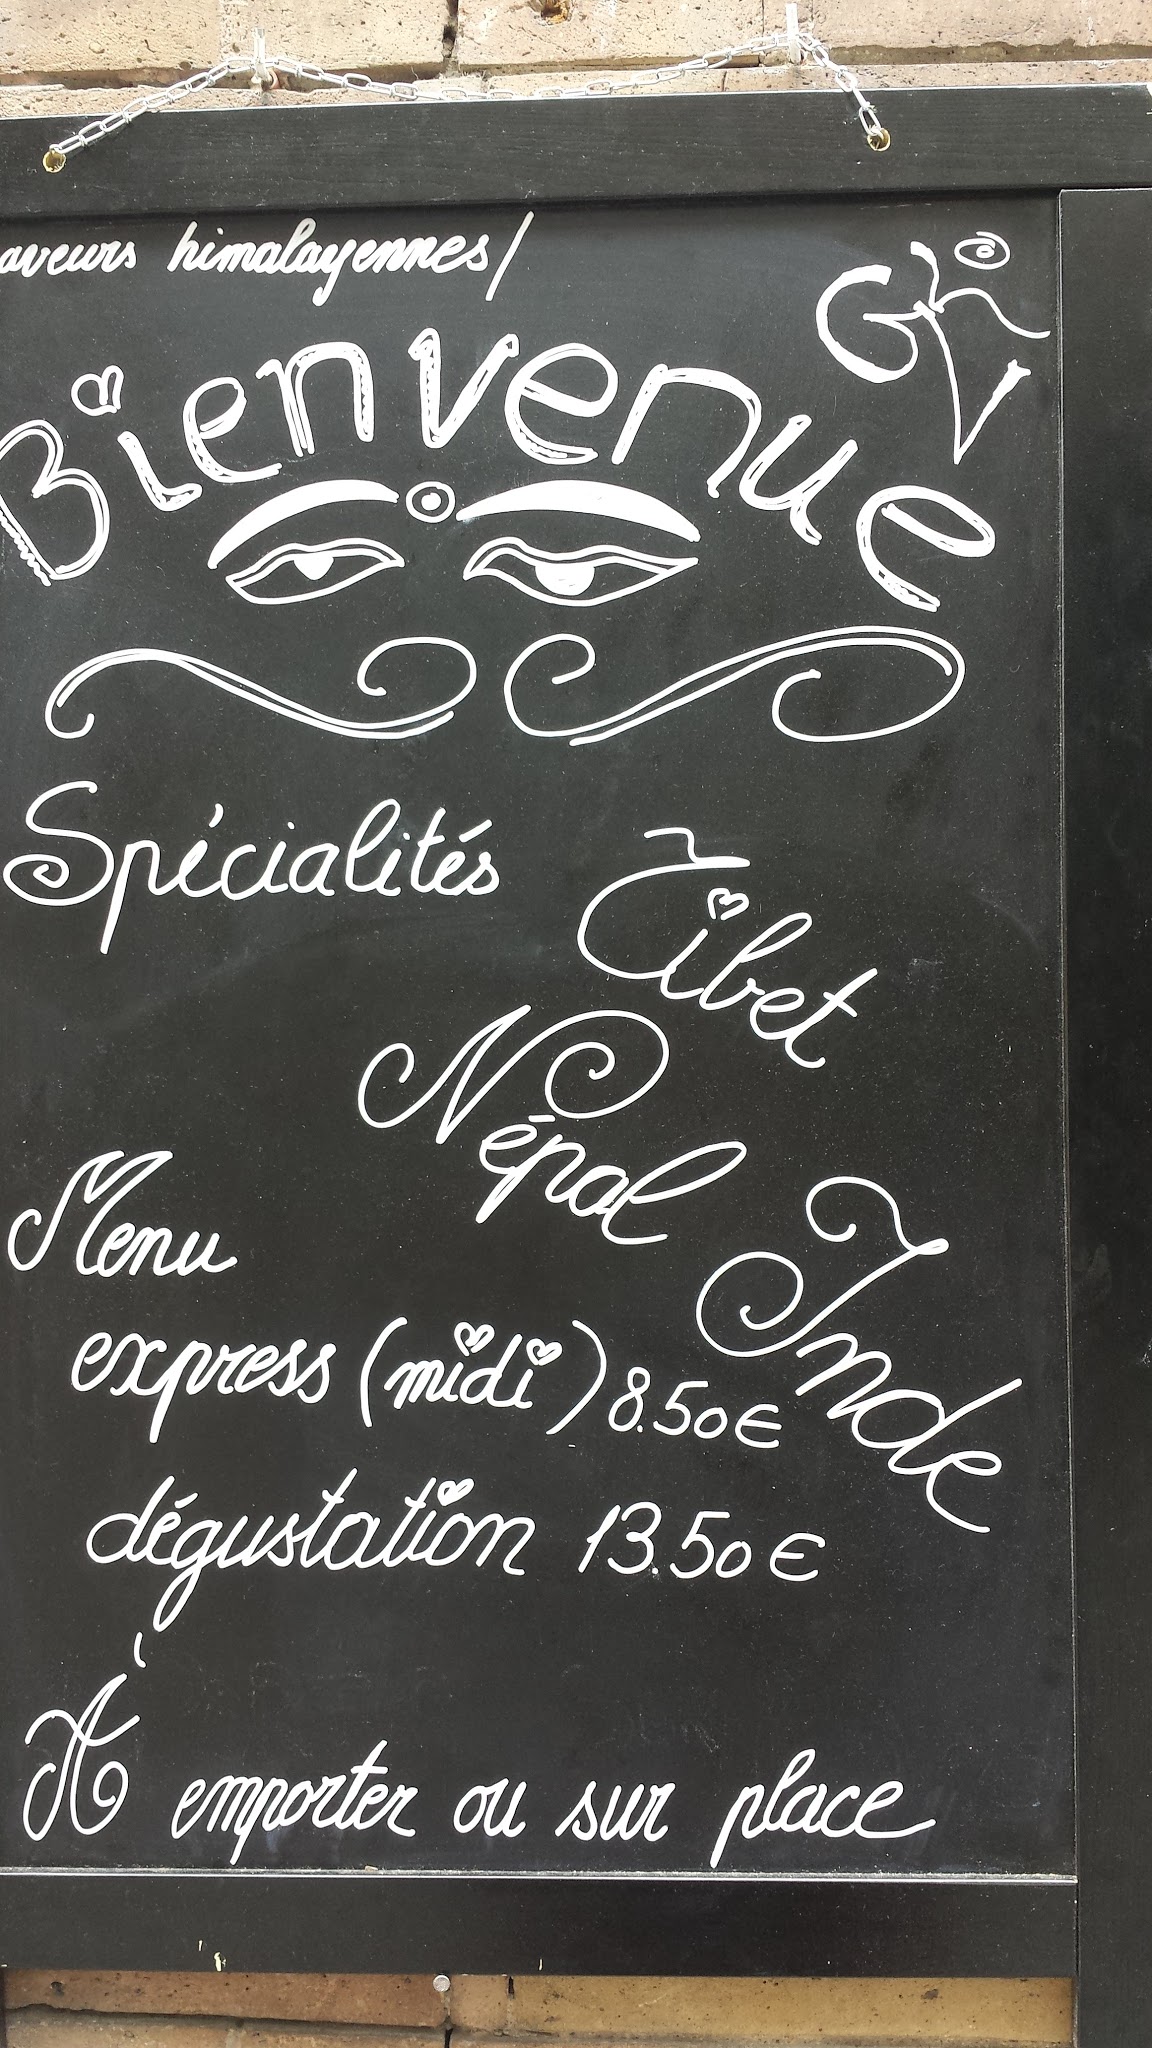 aveurs himalayennes/
Bienvenue
GV
Spécialités
Tibet
Népal
Inde
Menu
express (midi) 8.50€
dégustation 13.50€
À emporter ou sur place